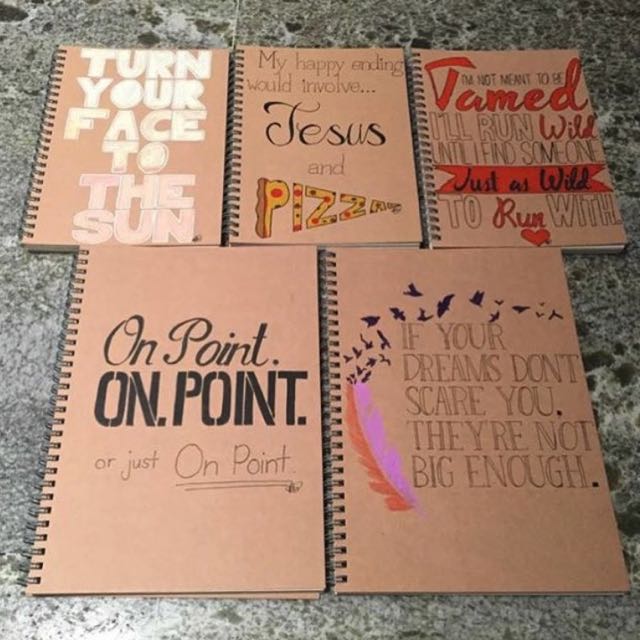 TURN
YOUR
FACE
TO
THE
SUN
My happy ending
would involve...
Jesus
and
PIZZA
I'M NOT MEANT TO BE
Tamed
I'LL RUN Wild
UNTIL I FIND SOMEONE
Just as Wild
TO Run WITH
On Point.
ON. POINT.
or just On Point
IF YOUR
DREAMS DON'T
SCARE YOU.
THEY'RE NOT
BIG ENOUGH.